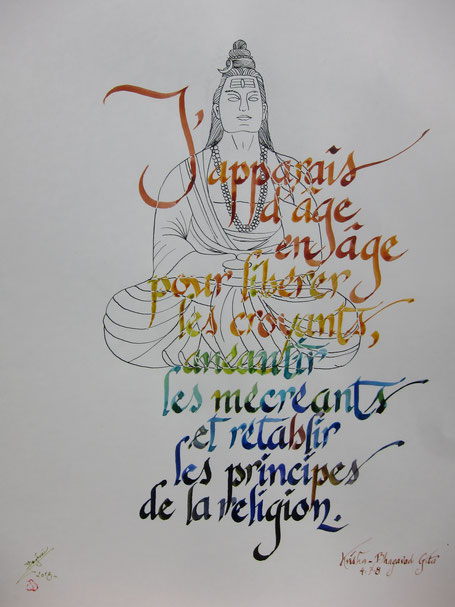 J'apparais
d'âge
en âge
pour libérer
les croyants,
anéantir
les mécréants
et rétablir
les principes
de la religion.
Krishna - Bhagavad Gita
4.7-8
2018-